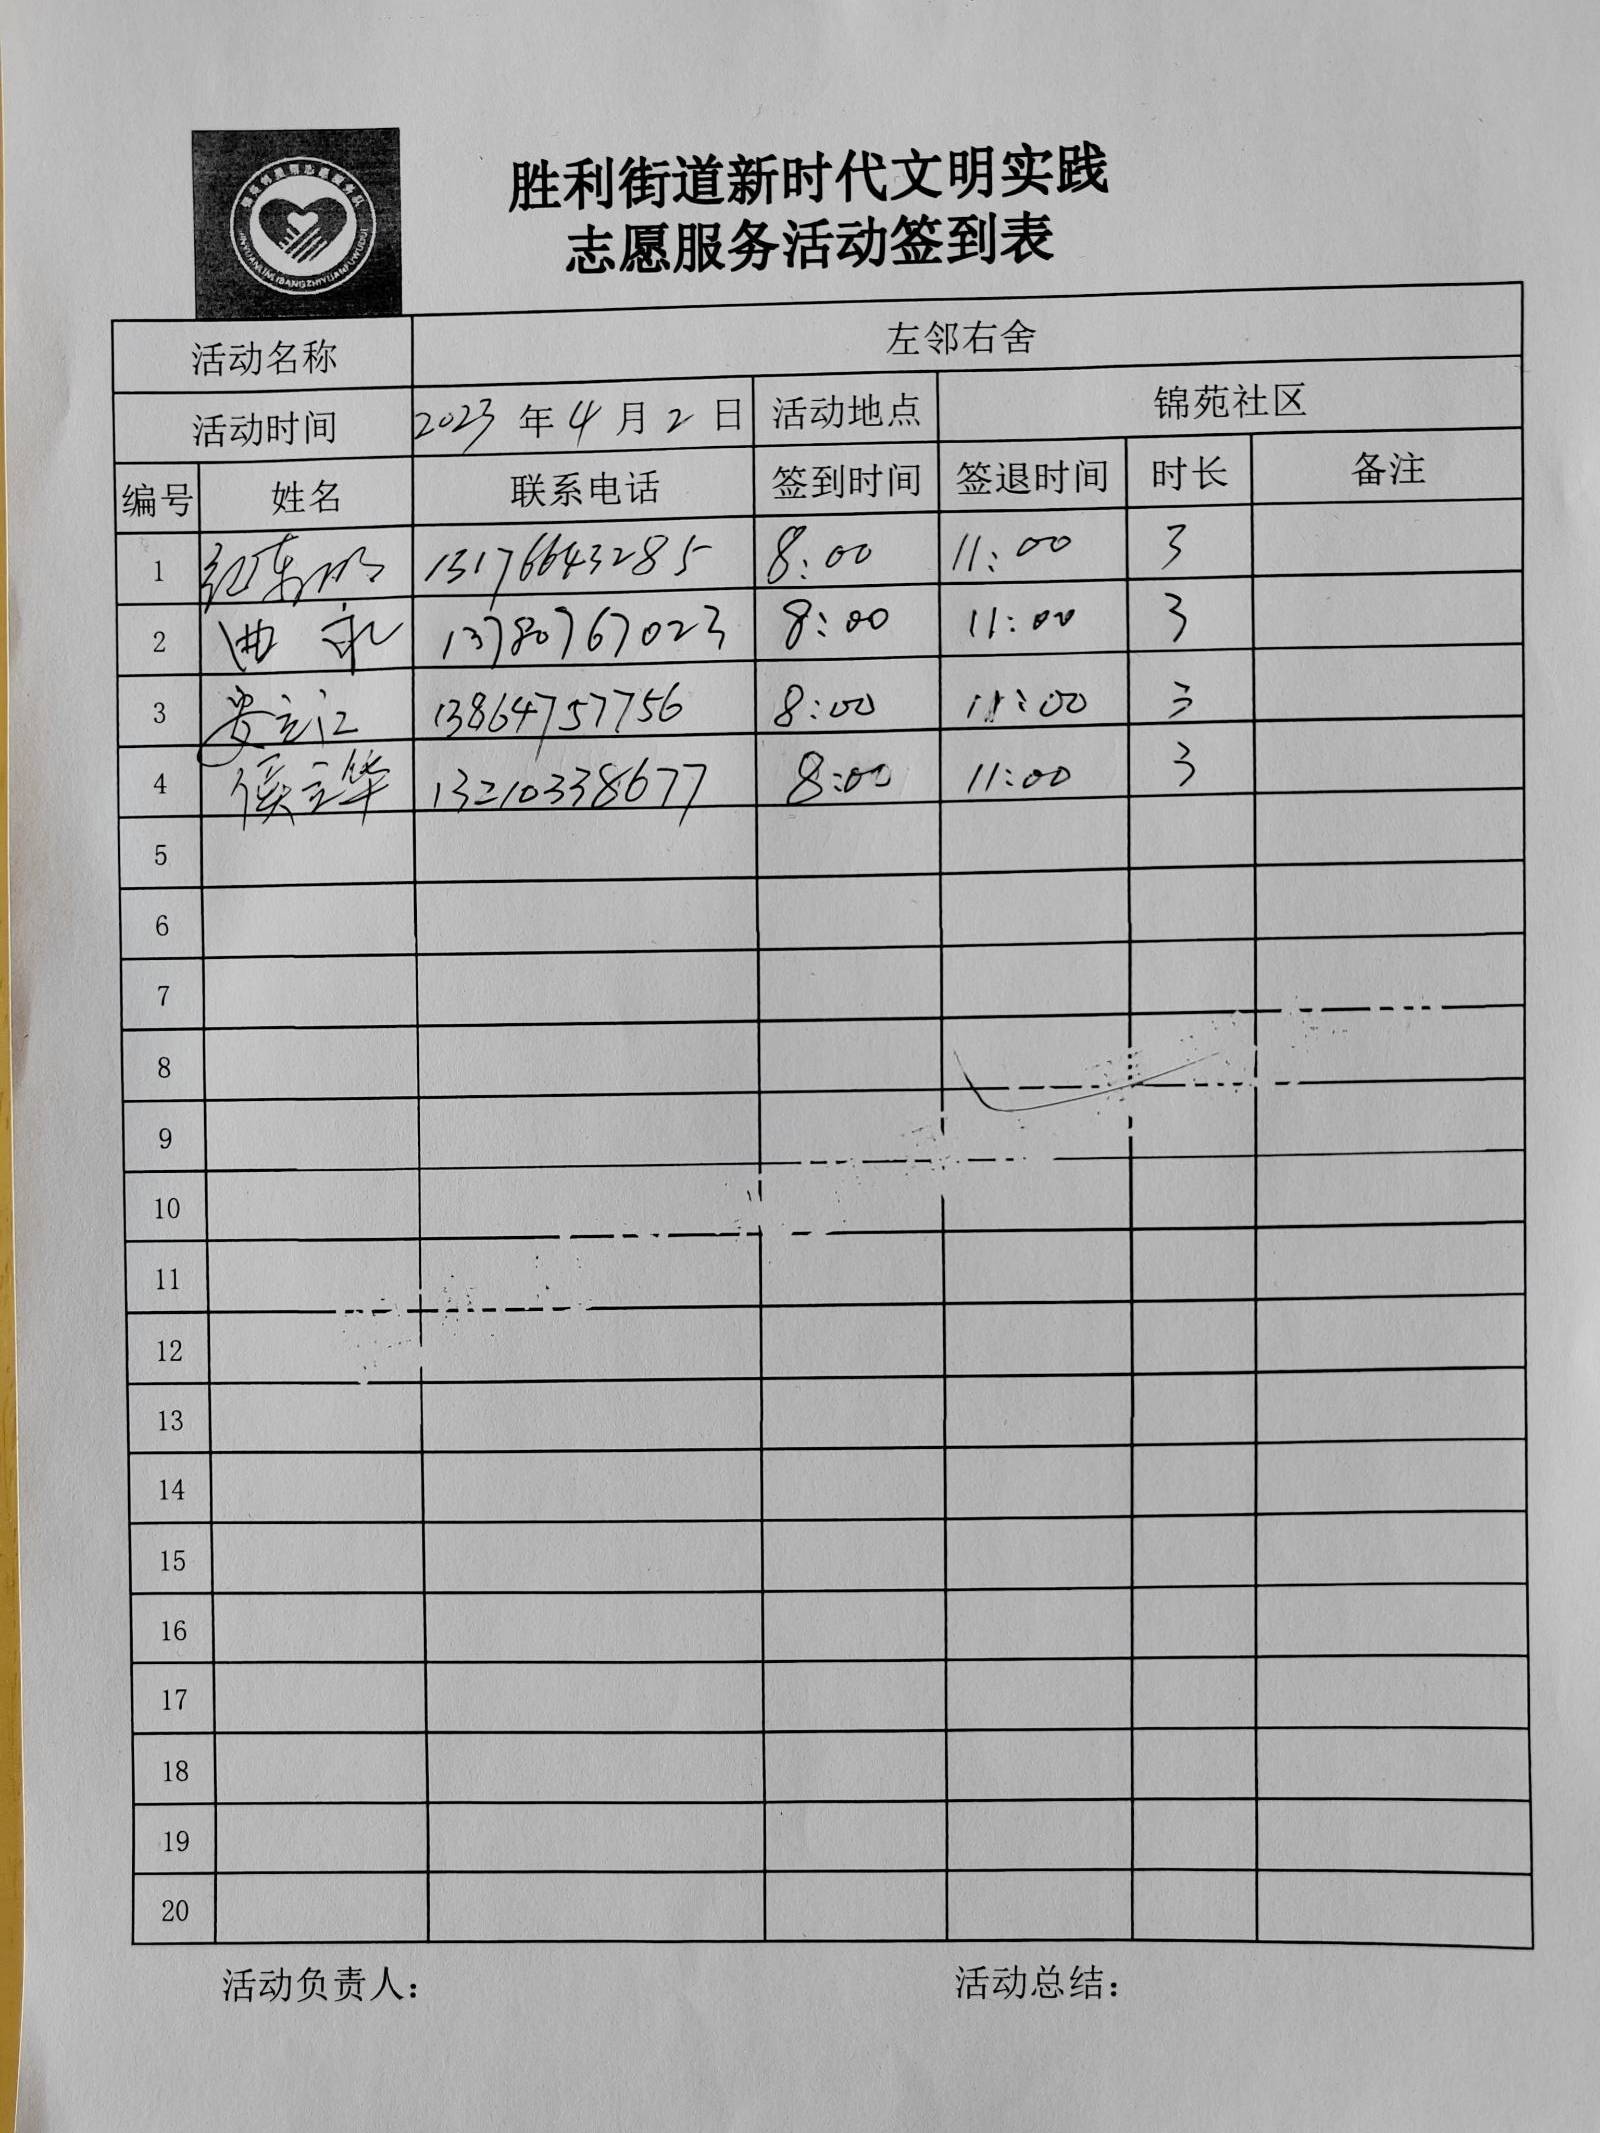 胜利街道新时代文明实践
志愿服务活动签到表
活动名称 左邻右舍
活动时间 2023年4月2日 活动地点 锦苑社区
编号 姓名 联系电话 签到时间 签退时间 时长 备注
1 纪东明 13176643285 8:00 11:00 3
2 曲永 13780767023 8:00 11:00 3
3 安立江 13864757756 8:00 11:00 3
4 侯立华 13210338677 8:00 11:00 3
5
6
7
8
9
10
11
12
13
14
15
16
17
18
19
20
活动负责人： 活动总结：